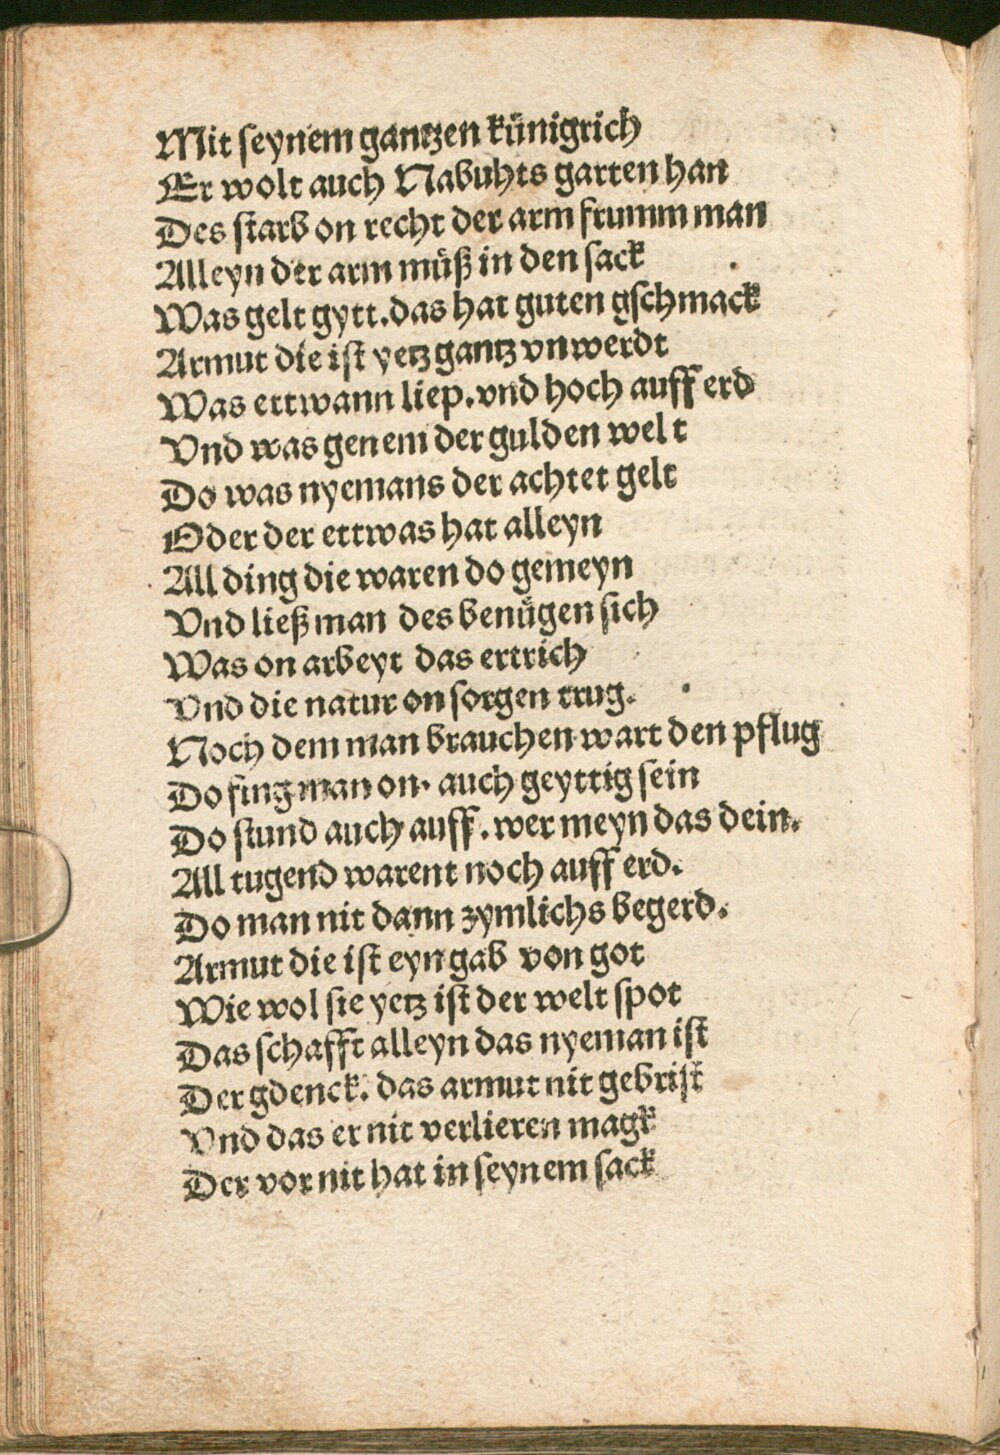 Mit seynem gantzen künigrich
Er wolt auch Nabuhts garten han
Des starb on recht der arm frumm man
Alleyn der arm muͤß in den sack
Was gelt gytt. das hat guten gschmack
Armut die ist yetz gantz vnwerdt
Was ettwann liep. vnd hoch auff erd
Vnd was genem der gulden welt
Do was nyemans der achtet gelt
Oder der ettwas hat alleyn
All ding die waren do gemeyn
Vnd ließ man des benuͤgen sich
Was on arbeyt das ertrich
Vnd die natur on sorgen trug.
Noch dem man brauchen wart den pflug
Do fing man on. auch geyttig sein
Do stund auch auff. wer meyn das dein.
All tugend warent noch auff erd.
Do man nit dann zymlichs begerd.
Armut die ist eyn gab von got
Wie wol sie yetz ist der welt spot
Das schafft alleyn das nyeman ist
Der gdenck. das armut nit gebrist
Vnd das er nit verlieren magk
Der vor nit hat in seynem sack